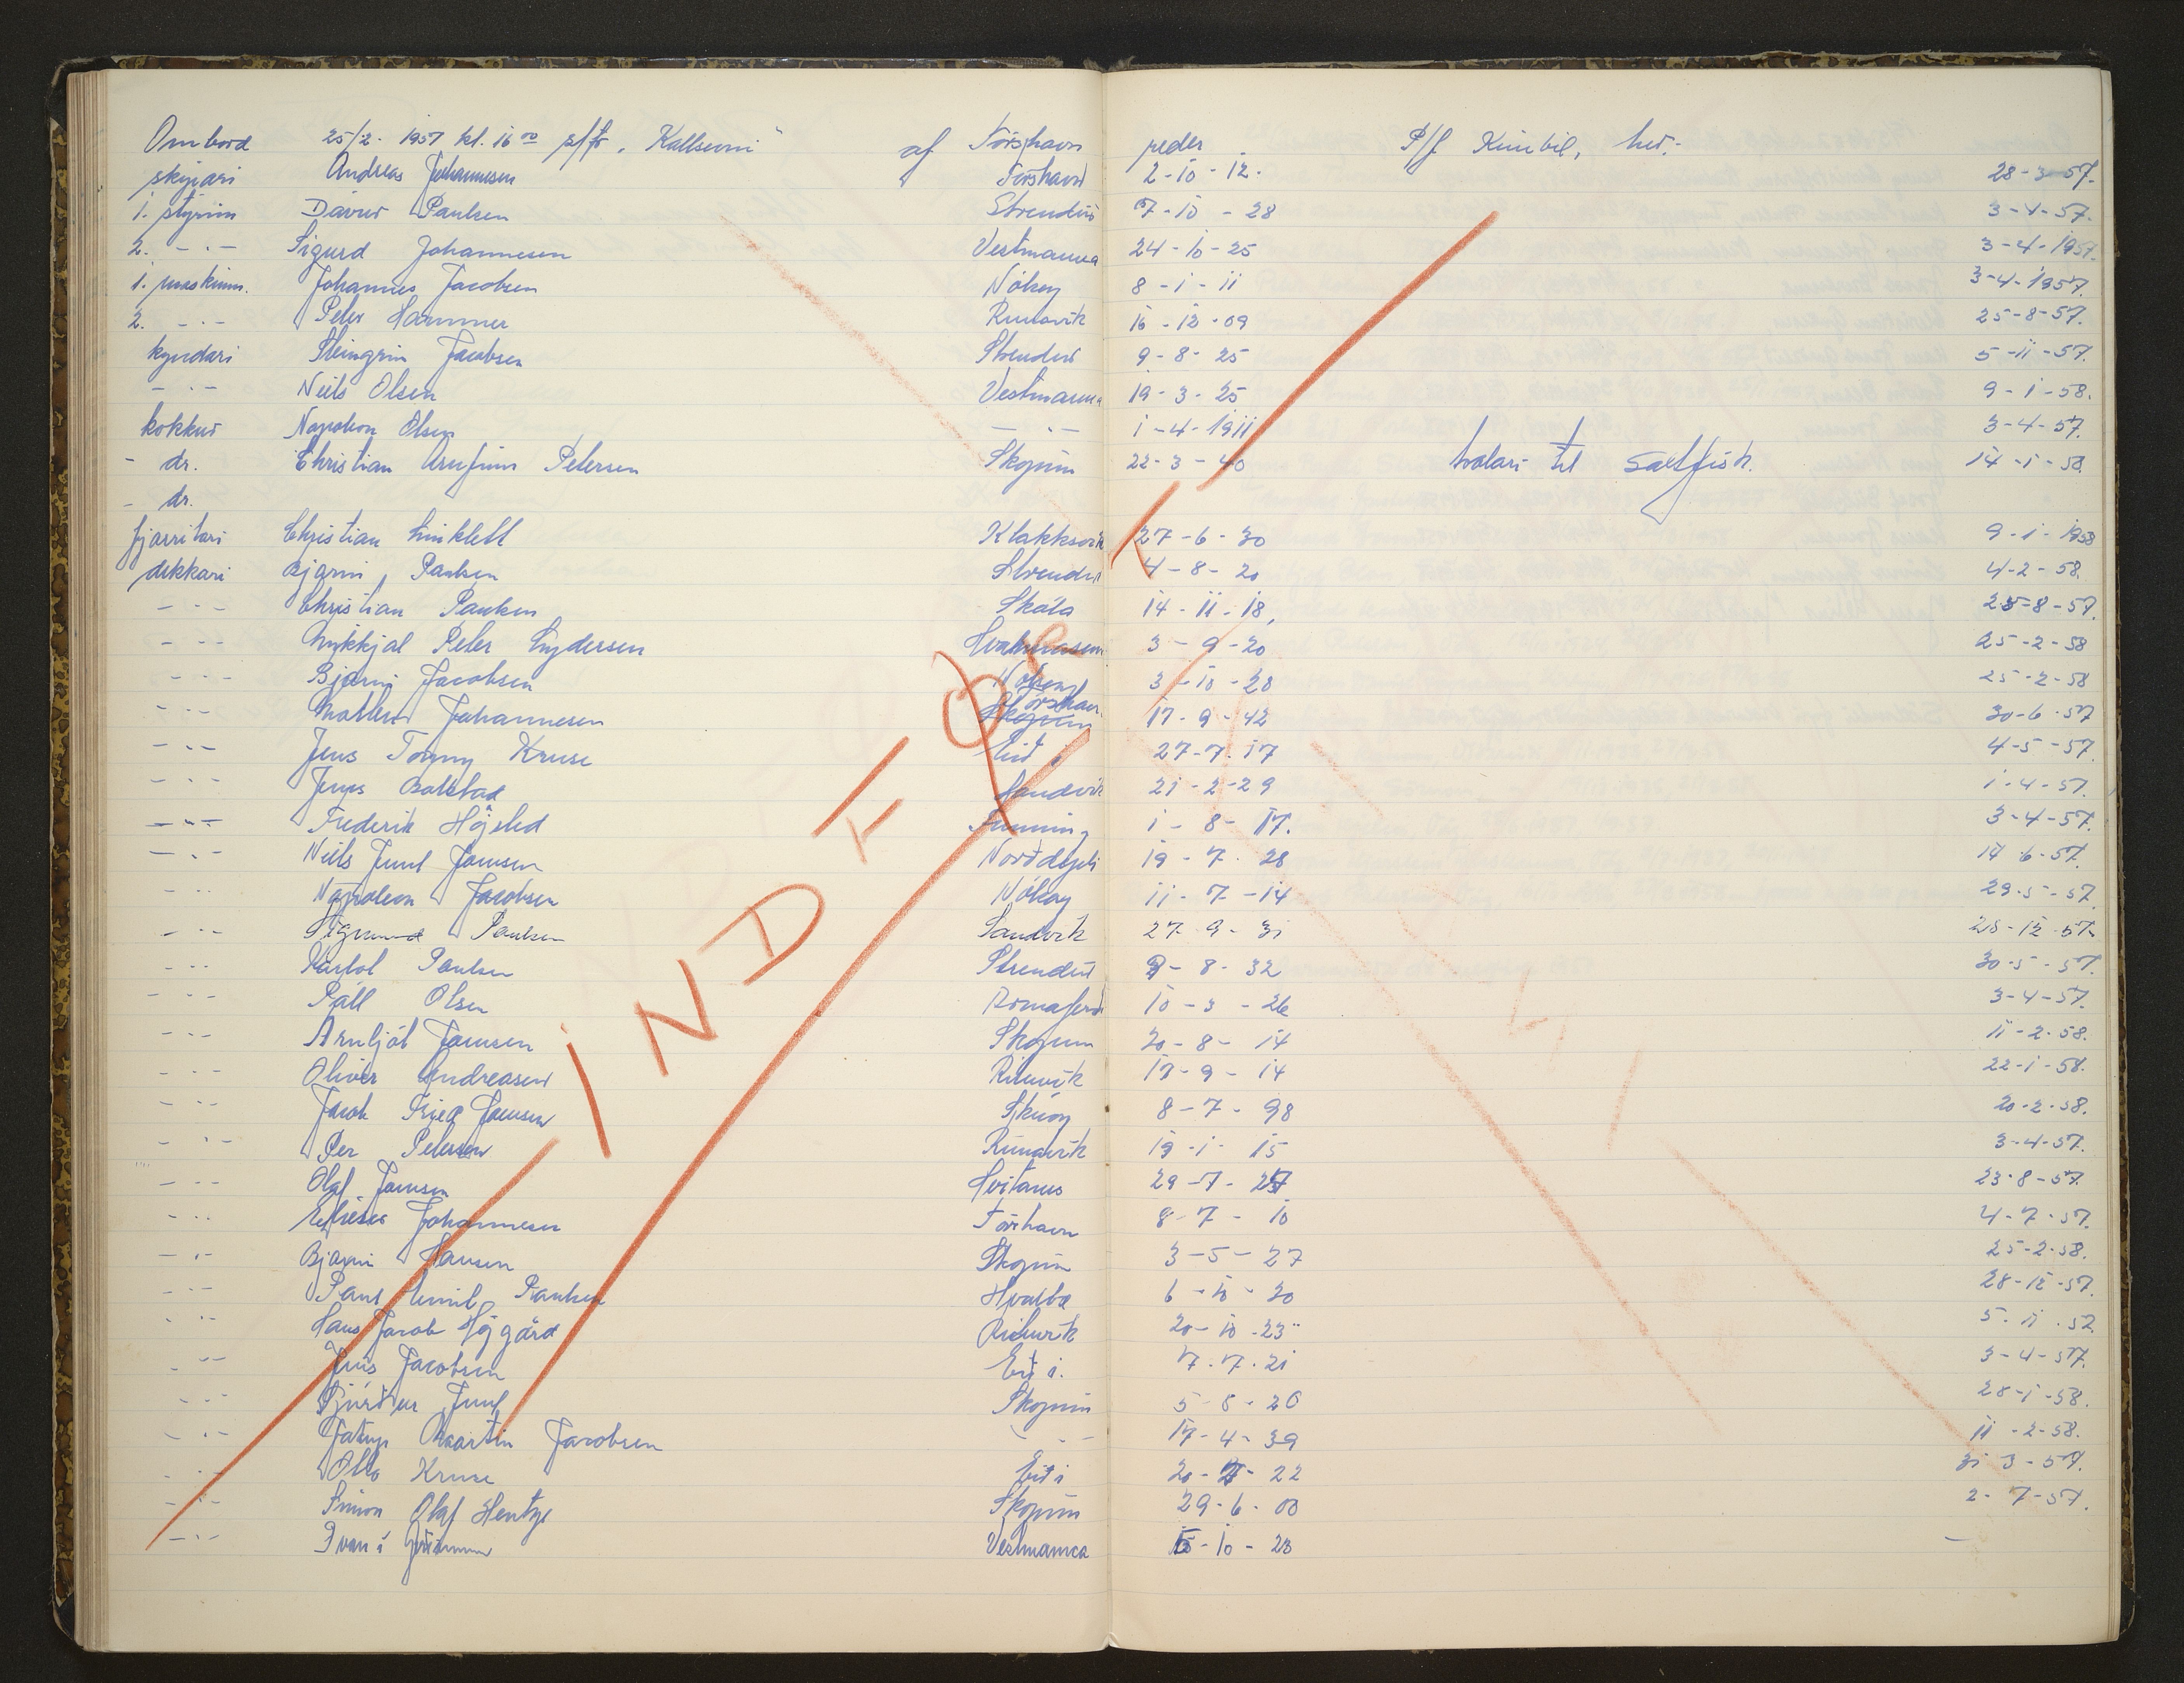 Ombord 25/2- 1957 kl. 16 00 s/tr. "Kallsevni" af Tórshavn reder P/f Kimbil, her.-
skipari Andreas Johannesen Tórshavn 2-10-12. 28-3-57.
1. stýrim Dávur Paulsen Strendur 7-10-28 3-4-57.
2. -"- Sigurd Johannesen Vestmanna 24-10-25 3-4-1957.
1. maskinm. Johannes Jacobsen Nólsoy 8-1-11 3-4-1957.
2. -"- Peter Hammer Runavík 16-12-09 25-8-57.
kyndari Steingrim Jacobsen Strendur 9-8-25 5-11-57.
-"- Niels Olsen Vestmanna 19-3-25 9-1-58.
kokkur Napoleon Olsen -"- 1-4-1911 3-4-57.
- dr. Christian Arnfinn Petersen Skopun 22-3-40 halari til saltfisk. 14-1-58
- dr.
fjarritari Christian Linklett Klakksvík 27-6-30 9-1-1958
dekkari Bjarni Paulsen Strendur 4-8-20 4-2-58.
-"- Christian Paulsen Skála 14-11-18, 25-8-57.
-"- Mikkjal Peter Lydersen 3-9-20 25-2-58
-"- Bjarni Jacobsen Nólsoy 3-10-28 25-2-58
-"- Johannesen Skopun Tórshavn 17-9-42 30-6-57
-"- Jens Tommy Kruse Eiði 27-7-17 4-5-57.
-"- Jens Sandvík 21-2-29 1-4-57.
-"- Frederik Højsted Funning 1-8-17. 3-4-57.
-"- Niels Juul Joensen Norðdepli 19-7-28 14-6-57.
-"- Napoleon Jacobsen Nólsoy 11-7-14 29-5-57.
-"- Sigmund Paulsen Sandvík 27-9-31 28-12-57.
-"- Paulsen Strendur 9-8-32 30-5-57.
-"- Páll Olsen 10-3-26 3-4-57.
-"- Arnljót Joensen Skopun 20-8-14 11-2-58.
-"- Oliver Andreasen Rituvík 17-9-14 22-1-58.
-"- Jacob Fried Joensen Skúoy 8-7-98 20-2-58.
-"- Per Petersen Runavík 19-1-15 3-4-57.
-"- Olaf Joensen Hvitanes 29-7-27 23-8-57.
-"- Johannesen Tórshavn 8-7-10 4-7-57.
-"- Bjarni Hansen Skopun 3-5-27 25-2-58.
-"- Paul Emil Paulsen Hvalba 6-10-30 28-12-57.
-"- Hans Jacob Højgård Rituvík 20-10-23" 5-11-57
-"- Jens Jacobsen Eiði. 7-7-21 3-4-57.
-"- Sjúrður Juul Skopun 5-8-26 28-1-58.
-"- Jatup Martin Jacobsen -"- 17-4-39 11-2-58.
-"- Otto Kruse Eiði 20-7-22 31-3-57.
-"- Simon Olaf Hentze Skopun 29-6-00 2-7-57.
-"- Ivan í Vestmanna 15-10-23 -
INDFØRT